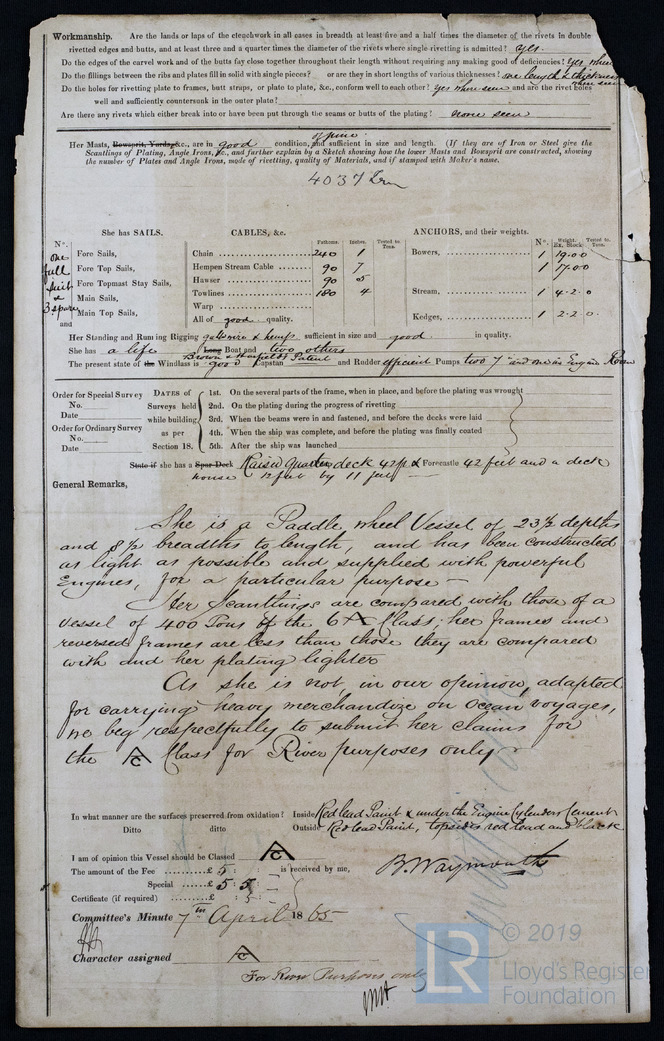 Workmanship. Are the lands or laps of the clenchwork in all cases in breadth at least five and a half times the diameter of the rivets in double
rivetted edges and butts, and at least three and a quarter times the diameter of the rivets where single rivetting is admitted? yes.
Do the edges of the carvel work and of the butts fay close together throughout their length without requiring any making good of deficiencies? yes where
Do the fillings between the ribs and plates fill in solid with single pieces? or are they in short lengths of various thicknesses? one length & thickness
Do the holes for rivetting plate to frames, butt straps, or plate to plate, &c., conform well to each other? yes where seen and are the rivet holes where seen
well and sufficiently countersunk in the outer plate?
Are there any rivets which either break into or have been put through the seams or butts of the plating? none seen
Her Masts, Bowsprit, Yards, &c., are in good condition, and sufficient in size and length. (If they are of Iron or Steel give the
Scantlings of Plating, Angle Irons, &c., and further explain by a Sketch showing how the lower Masts and Bowsprit are constructed, showing
the number of Plates and Angle Irons, mode of rivetting, quality of Materials, and if stamped with Maker's name.
4037
She has SAILS. CABLES, &c. Fathoms. Inches. Tested to Tons. ANCHORS, and their weights. No. Weight Ex. Stock Tested to Tons.
No.
one full suit & 3 spare
and
Fore Sails, Chain 240 1 Bowers, 1 19.0.0
Fore Top Sails, Hempen Stream Cable 90 7 1 17.0.0
Fore Topmast Stay Sails, Hawser 90 5
Main Sails, Towlines 180 4 Stream, 1 4.2.0
Main Top Sails, Warp
All of good quality. Kedges, 1 2.2.0
Her Standing and Running Rigging galv wire & hemp sufficient in size and good in quality.
She has a life Long Boat and two others
The present state of the Windlass is good Brown & Harfield's Patent Capstan and Rudder efficient Pumps two 7" and one in Engine Room
Order for Special Survey
No.
Date
Order for Ordinary Survey
No.
Date
DATES of Surveys held while building as per Section 18.
1st. On the several parts of the frame, when in place, and before the plating was wrought
2nd. On the plating during the progress of rivetting
3rd. When the beams were in and fastened, and before the decks were laid
4th. When the ship was complete, and before the plating was finally coated
5th. After the ship was launched
State if she has a Spar Deck Raised Quarter deck 42ft & Forecastle 42 feet and a deck
house 12 feet by 11 feet
General Remarks,
She is a Paddle wheel Vessel of 23½ depths
and 8½ breadths to length, and has been constructed
as light as possible and supplied with powerful
Engines, for a particular purpose —
Her Scantlings are compared with those of a
Vessel of 400 Tons of the 6 A Class; her frames and
reversed frames are less than those they are compared
with and her plating lighter
As she is not in our opinion adapted
for carrying heavy merchandize on Ocean voyages,
we beg respectfully to submit her claims for
the A C Class for River purposes only
In what manner are the surfaces preserved from oxidation? Inside Red lead Paint & under the Engine Cylenders Cement
Ditto ditto Outside Red lead Paint, topsides red lead and black
I am of opinion this Vessel should be Classed A C
The amount of the Fee £ 5 : : is received by me,
Special £ 5 : 5 : B. Waymouth
Certificate (if required) £ : 5 :
Committee's Minute 7th April 1865
Character assigned A C
For River Purposes only
© 2019
LR Lloyd's Register
Foundation